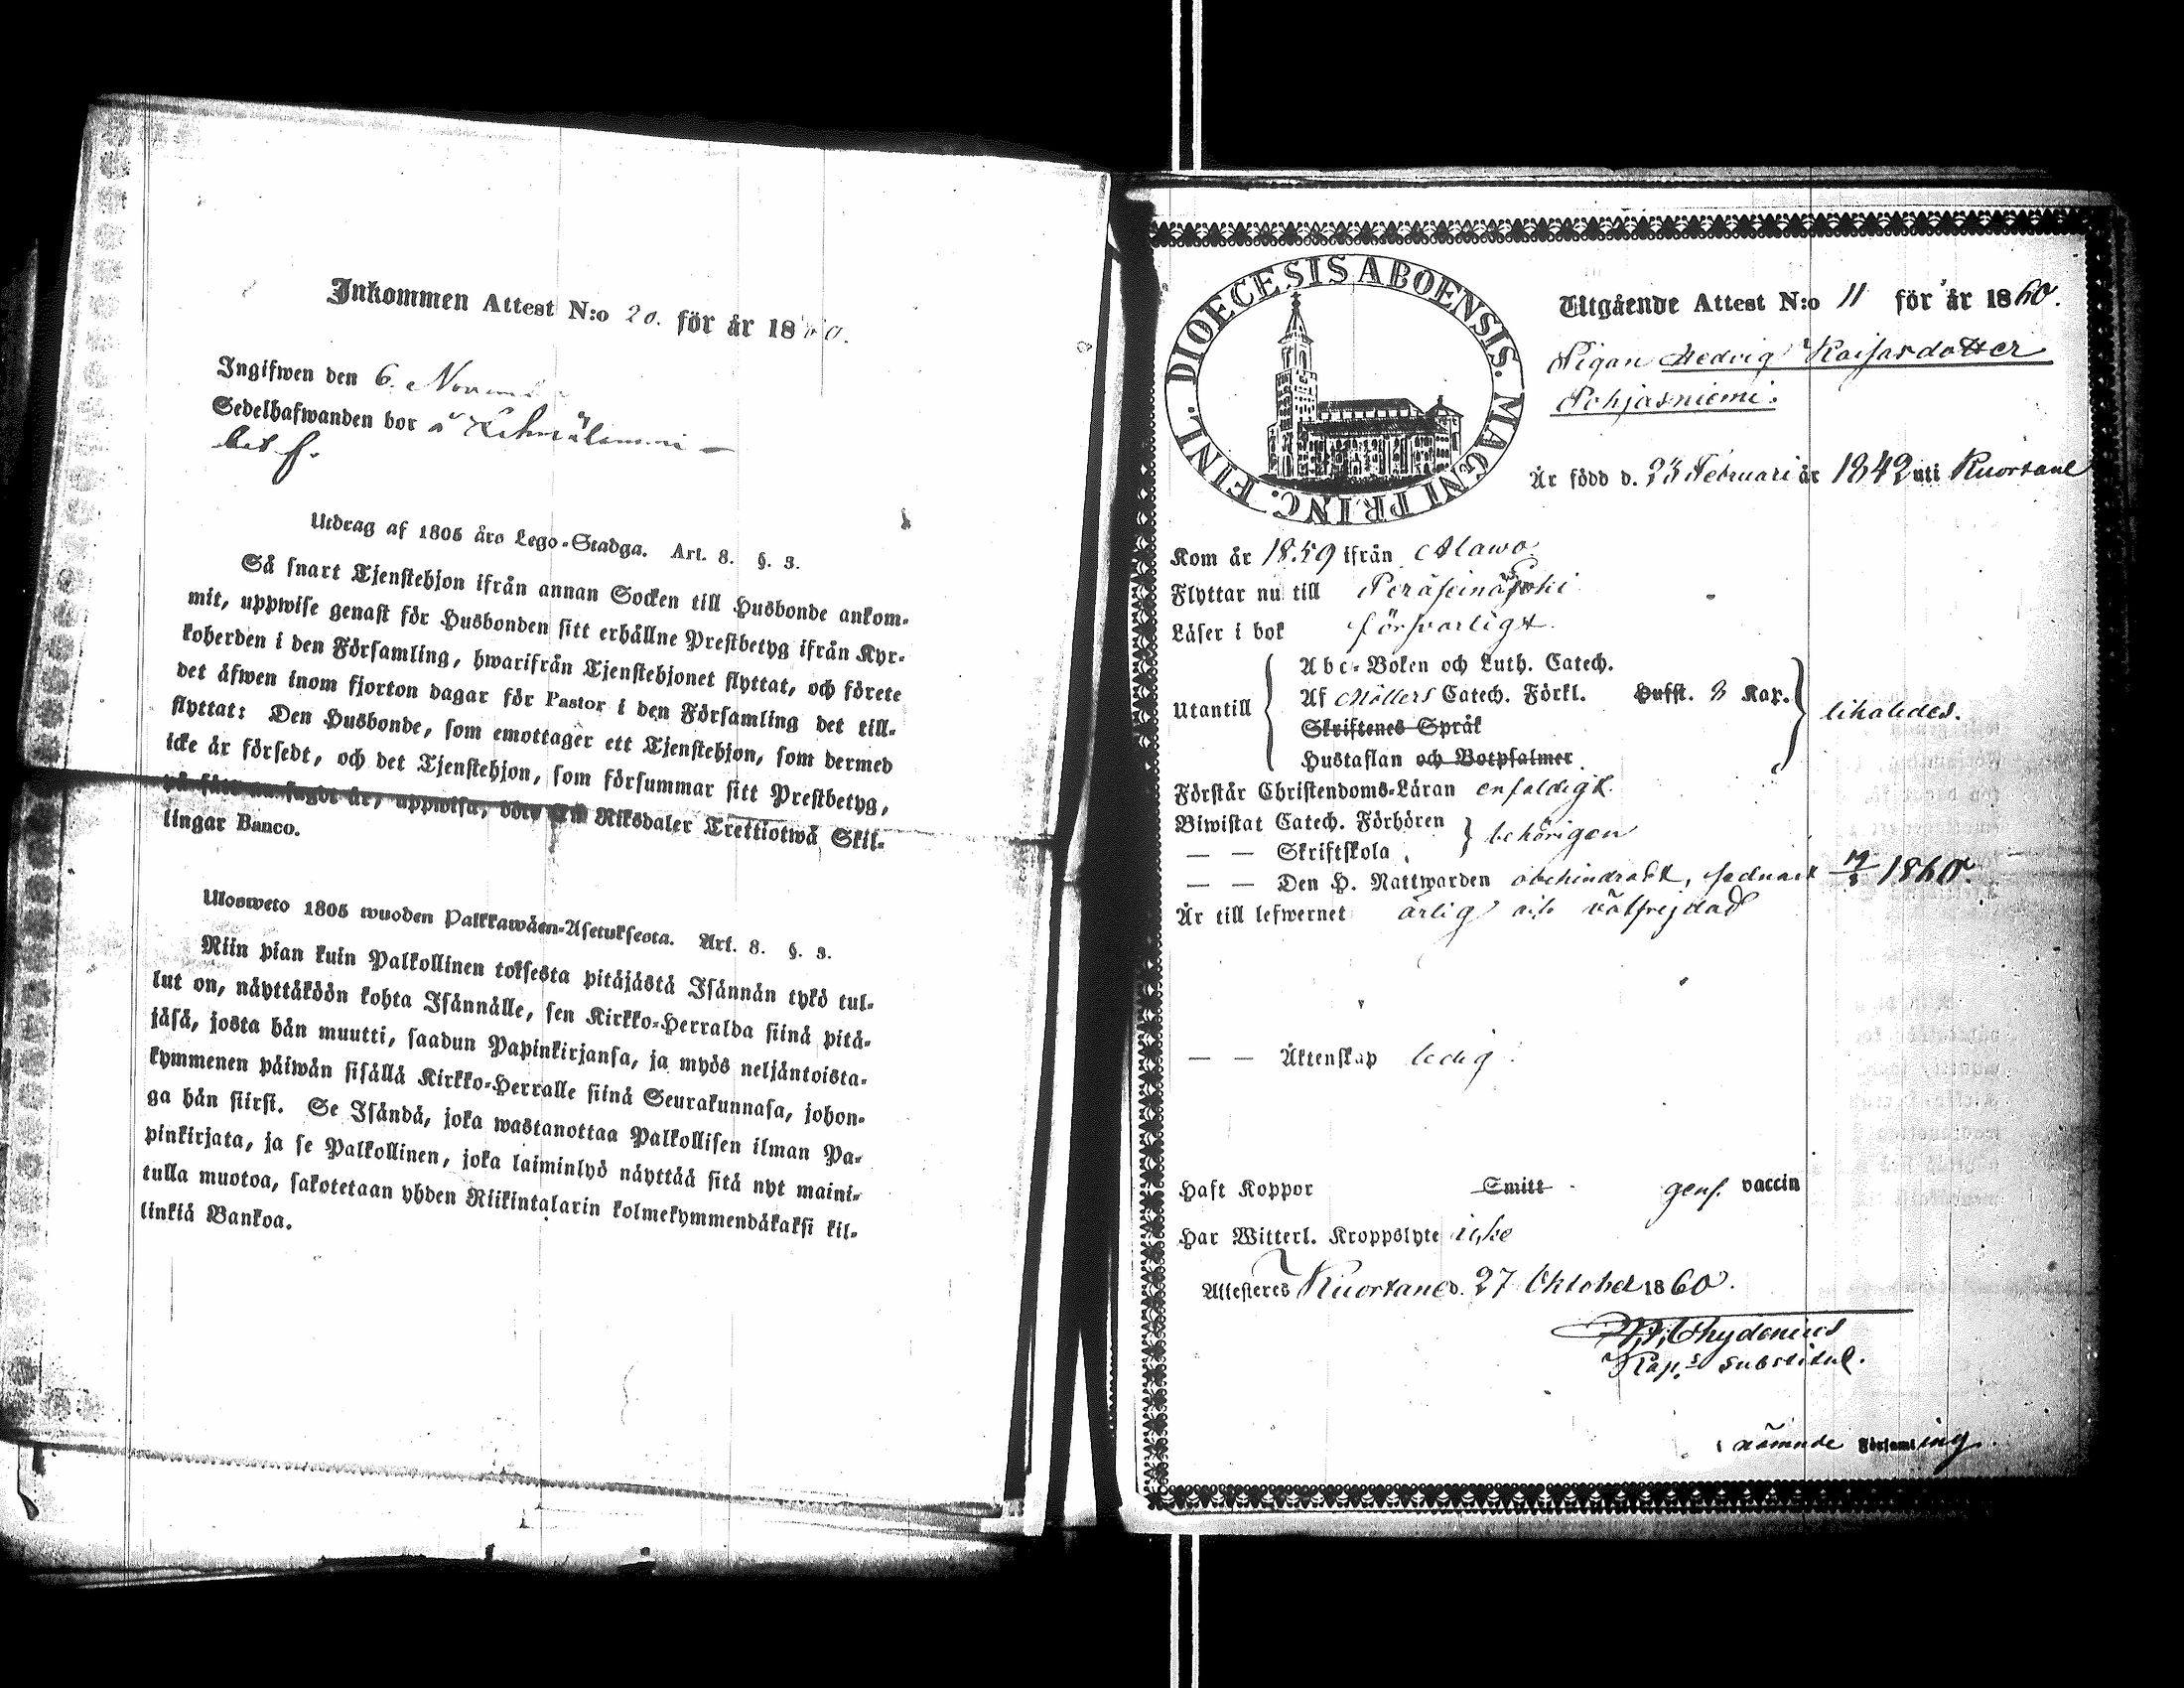 Inkommen Attest N:o 20. för år 1860.
Ingifwen den 6. Novemb
Sedelhafwanden bor å
Utdrag af 1805 års Lego-Stadga. Art. 8. §. 3.
Så snart Tjenstehjon ifrån annan Socken till Husbonde ankom-
mit, uppwise genast för Husbonden sitt erhållne Prestbetyg ifrån Kyr-
koherden i den Församling, hwarifrån Tjenstehjonet flyttat, och förete
det äfwen inom fjorton dagar för Pastor i den Församling det till-
flyttat: Den Husbonde, som emottager ett Tjenstehjon, som dermed
icke är försedt, och det Tjenstehjon, som försummar sitt Prestbetyg,
på sätt nu sagdt är, uppwisa, böte Riksdaler Trettiotwå Skil-
lingar Banco.
Ulosweto 1805 wuoden Palkkawäen-Asetuksesta. Art. 8. §. 3.
Niin pian kuin Palkollinen toksesta pitäjästä Isännän tykö tul-
lut on, näyttäköön kohta Isännälle, sen Kirkko-Herralda siinä pitä-
jäsä, josta hän muutti, saadun Papinkirjansa, ja myös neljäntoista-
kymmenen päiwän sisällä Kirkko-Herralle siinä Seurakunnasa, johon-
ga hän siirsi. Se Isändä, joka wastanottaa Palkollisen ilman Pa-
pinkirjata, ja se Palkollinen, joka laiminlyö näyttää sitä nyt maini-
tulla muotoa, sakotetaan yhden Riikintalarin kolmekymmendäkaksi kil-
linkiä Bankoa.
DIOECESIS ABOENSIS. MAGNI PRINC. FINL.
Utgående Attest N:o 11 för år 1860.
Pigan Hedvig Kaisasdotter
Pohjasniemi.
Är född d. 23 Februari år 1842 uti Kuortane
Kom år 1859 ifrån Alawo
Flyttar nu till Peräseinäjoki
Läser i bok försvarligt
Utantill
Abc-Boken och Luth. Catech.
Af Möllers Catech. Förkl. Hufst. 8 Kap.
Skriftenes Språk
Hustaflan och Botpsalmer
likaledes.
Förstår Christendoms-Läran enfaldigt.
Biwistat Catech. Förhören
— — Skriftskola
behörigen
— — Den H. Nattwarden obehindradt, sednast 1860.
Är till lefwernet ärlig och välfrejdad
— — Äktenskap ledig.
Haft Koppor Smitt genf. vaccin
Har Witterl. Kroppslyte icke
Attesteres Kuortane d. 27 Oktober 1860.
Chydenius
Kap:s substitut.
i nämnde Församling.